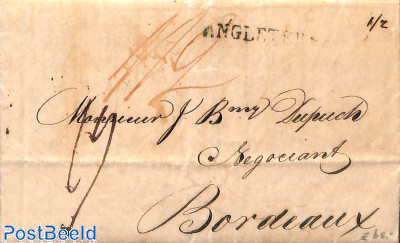 1/2
ANGLETERRE
Monsieur J Bmy Dupuch
Negociant
Bordeaux
PostBeeld